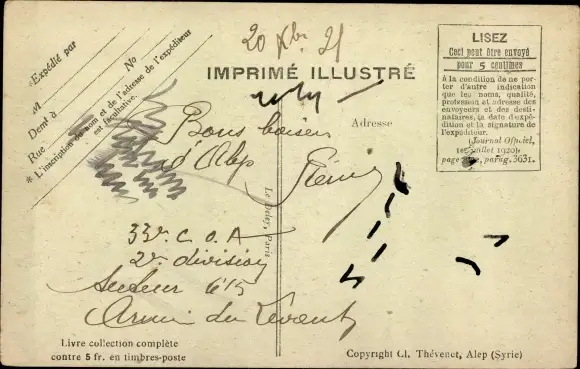 20 Xbre 21
IMPRIMÉ ILLUSTRÉ
LISEZ
Ceci peut être envoyé
pour 5 centimes
à la condition de ne por-
ter d'autre indication
que les noms, qualité,
profession et adresse des
envoyeurs et des desti-
nataires, la date d'expé-
dition et la signature de
l'expéditeur.
(Journal Officiel,
juillet 1920)
page parag. 3631.
Expédié par
M
Demt à
Rue No
* L'inscription du nom et de l'adresse de l'expéditeur
est facultative.
Adresse
Bons baisers
d'Alep
Rémy
Le Deley, Paris
33e C O A
2e division
Secteur 615
Armée du Levant
Livre collection complète
contre 5 fr. en timbres-poste
Copyright Cl. Thévenet, Alep (Syrie)